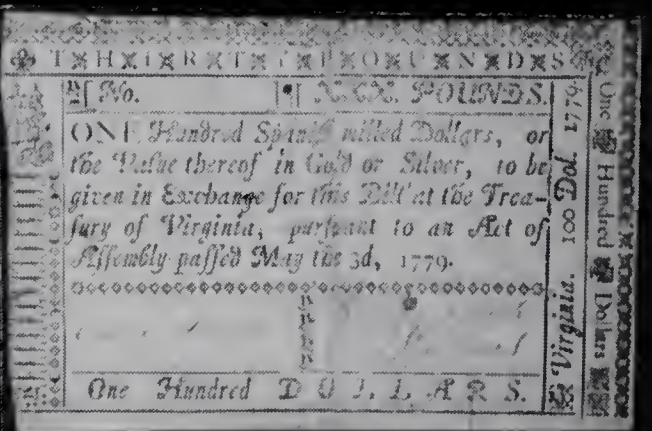 THIRTY POUNDS
No. XXX. POUNDS.
ONE Hundred Spanish milled Dollars, or
the Value thereof in Gold or Silver, to be
given in Exchange for this Bill at the Trea-
sury of Virginia, pursuant to an Act of
Assembly passed May the 3d, 1779.
One Hundred DOLLARS.
Virginia. 100 Dol. 1779.
One Hundred Dollars